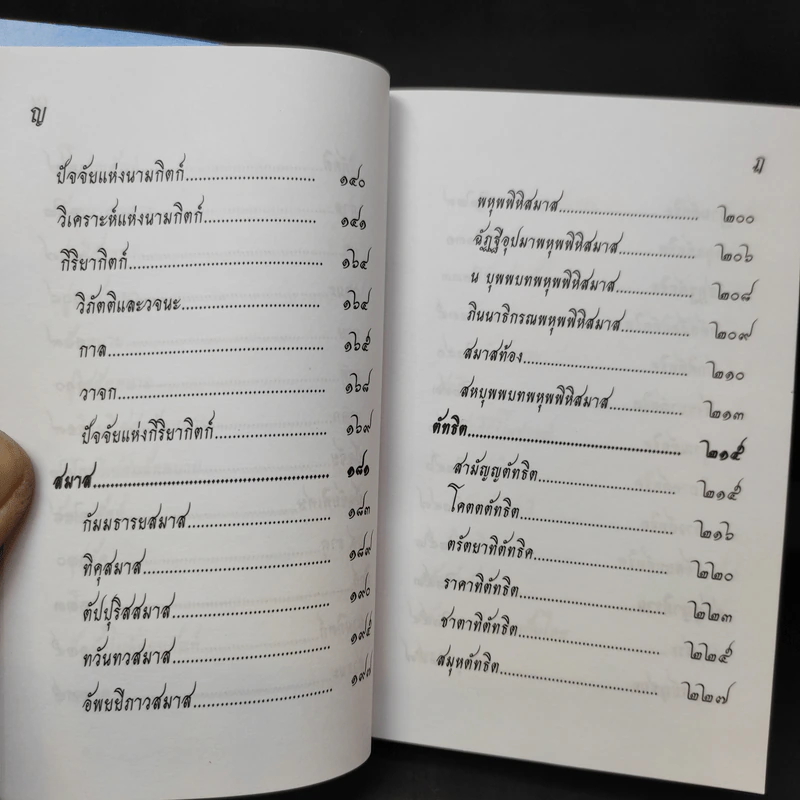 ญ
ปัจจัยแห่งนามกิตก์.......................... ๑๔๐
วิเคราะห์แห่งนามกิตก์.......................... ๑๔๑
กิริยากิตก์.......................... ๑๖๔
วิภัตติและวจนะ.......................... ๑๖๔
กาล.......................... ๑๖๕
วาจก.......................... ๑๖๘
ปัจจัยแห่งกิริยากิตก์.......................... ๑๖๙
สมาส.......................... ๑๘๑
กัมมธารยสมาส.......................... ๑๘๓
ทิคุสมาส.......................... ๑๘๙
ตัปปุริสสมาส.......................... ๑๙๐
ทวันทวสมาส.......................... ๑๙๕
อัพยยีภาวสมาส.......................... ๑๙๗
ฎ
พหุพพิหิสมาส.......................... ๒๐๐
ฉัฏฐีอุปมาพหุพพิหิสมาส.......................... ๒๐๖
น บุพพบทพหุพพิหิสมาส.......................... ๒๐๘
ภินนาธิกรณพหุพพิหิสมาส.......................... ๒๐๙
สมาสท้อง.......................... ๒๑๐
สหบุพพบทพหุพพิหิสมาส.......................... ๒๑๓
ตัทธิต.......................... ๒๑๕
สามัญญตัทธิต.......................... ๒๑๕
โคตตตัทธิต.......................... ๒๑๖
ตรัตยาทิตัทธิค.......................... ๒๒๐
ราคาทิตัทธิต.......................... ๒๒๓
ชาตาทิตัทธิต.......................... ๒๒๕
สมุหตัทธิต.......................... ๒๒๗